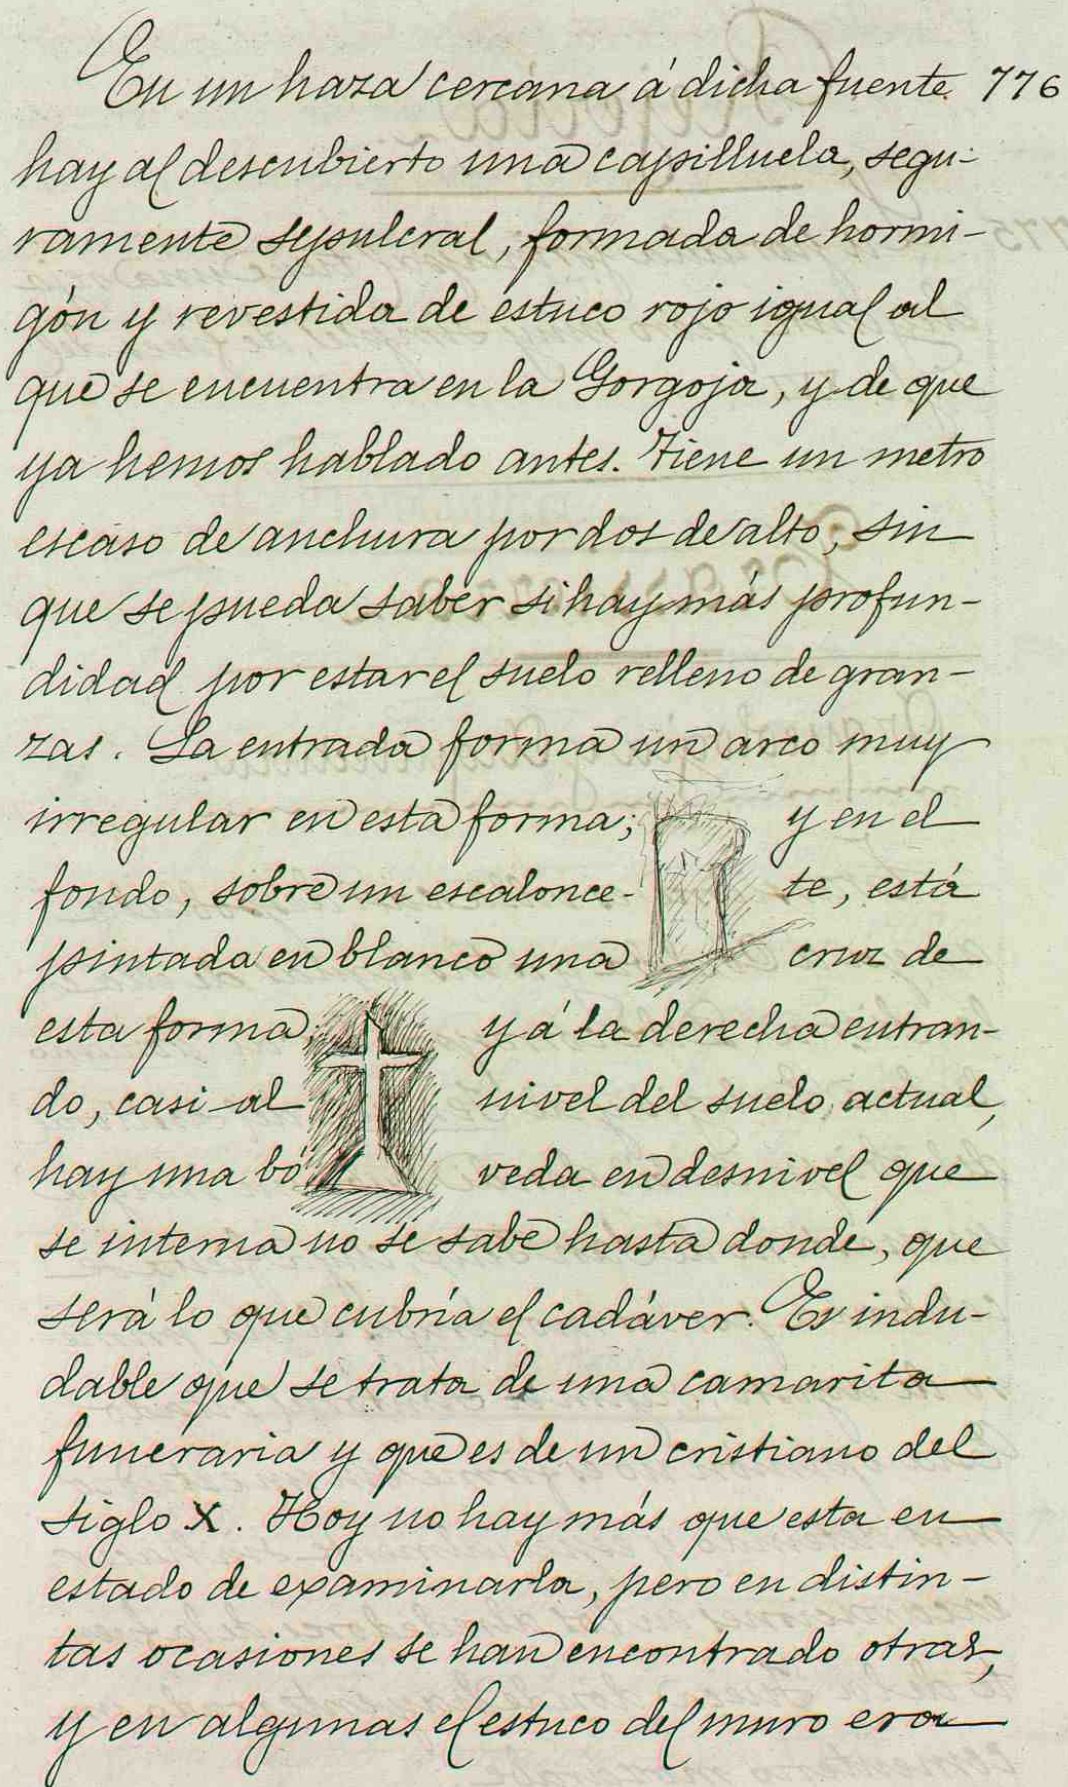 En un haza cercana á dicha fuente 776
hay al descubierto una capilluela, segu-
ramente sepulcral, formada de hormi-
gón y revestida de estuco rojo igual al
que se encuentra en la Gorgoja, y de que
ya hemos hablado antes. Tiene un metro
escaso de anchura por dos de alto, sin
que se pueda saber si hay más profun-
didad por estar el suelo relleno de gran-
zas. La entrada forma un arco muy
irregular en esta forma; y en el
fondo, sobre un escalonce- te, está
pintada en blanco una cruz de
esta forma, y á la derecha entran-
do, casi al nivel del suelo actual,
hay una bó veda en desnivel que
se interna no se sabe hasta donde, que
será lo que cubría el cadáver. Es indu-
dable que se trata de una camarita
funeraria y que es de un cristiano del
siglo X. Hoy no hay más que esta en
estado de examinarla, pero en distin-
tas ocasiones se han encontrado otras,
y en algunas el estuco del muro era